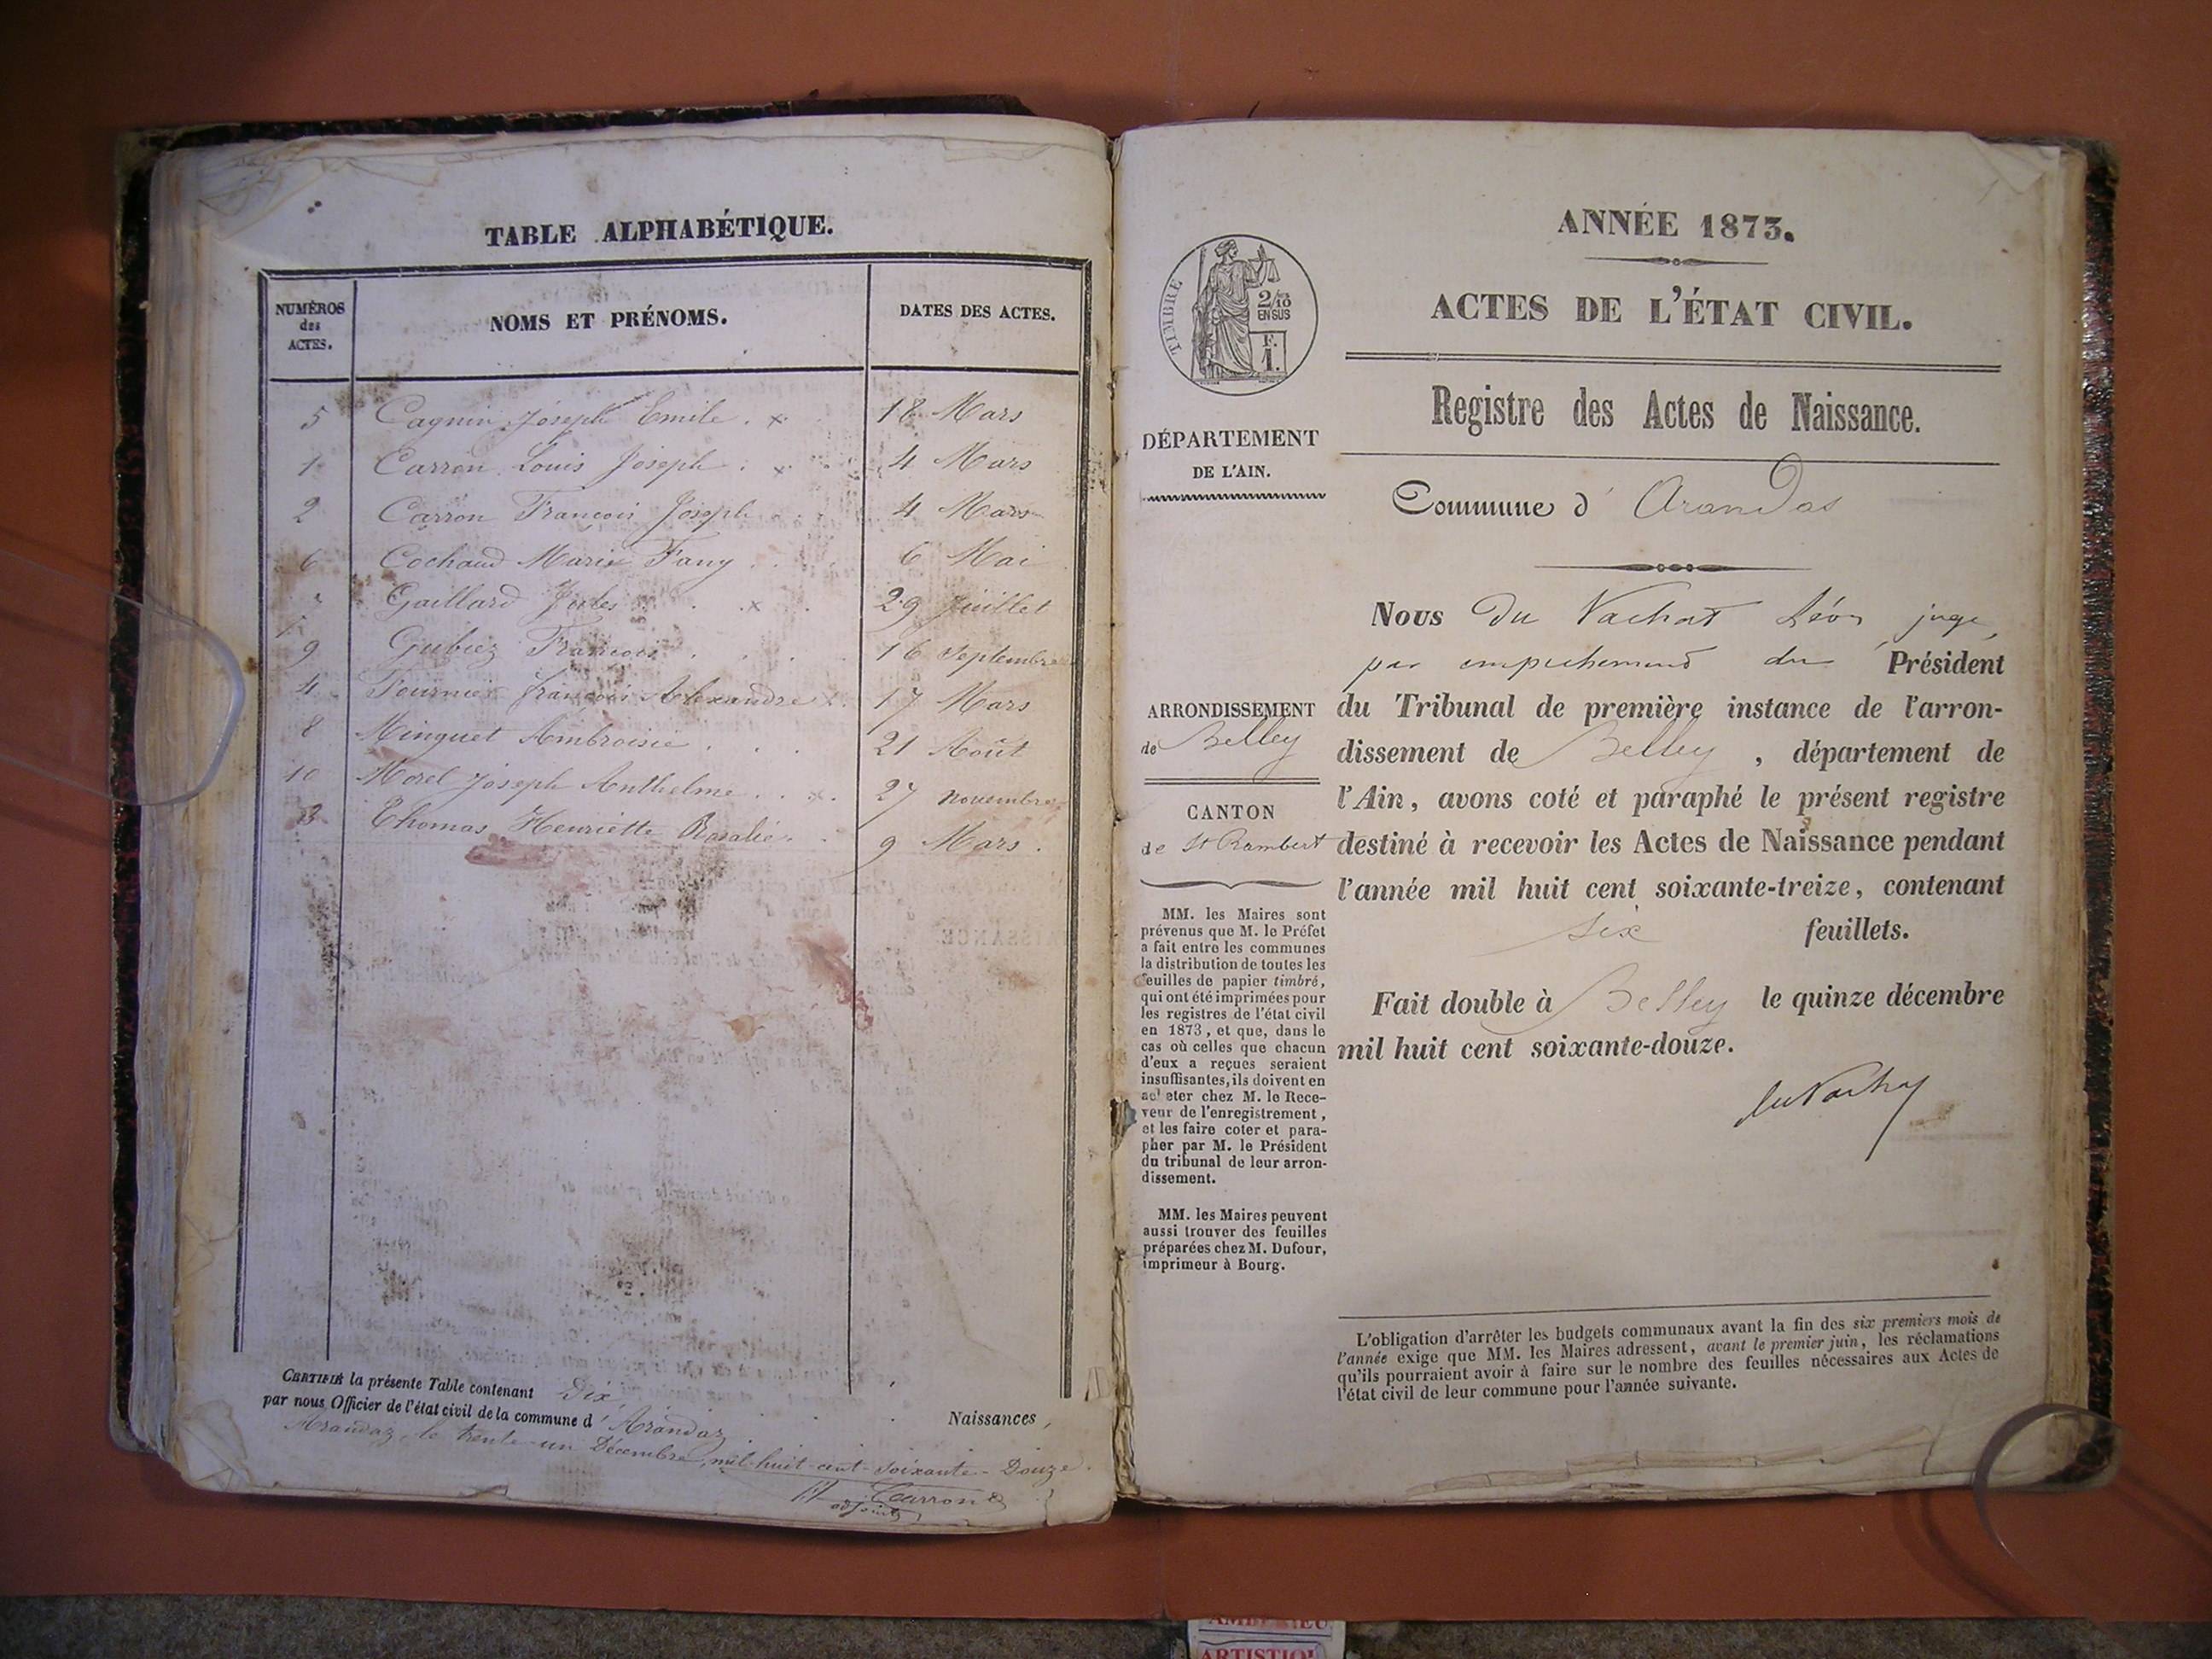 TABLE ALPHABÉTIQUE.
NUMÉROS
des
ACTES.
NOMS ET PRÉNOMS.
DATES DES ACTES.
5 Cagnin Joseph Emile . x 18 Mars
1 Carron Louis Joseph . x 4 Mars
2 Carron François Joseph . . 4 Mars
6 Cochaud Marie Fany . . 6 Mai
Gaillard Jules . x . 29 Juillet
9 Gubiez François . . . 16 Septembre
4 Fournier françois Alexandre x. 17 Mars
8 Minguet Ambroisie . . . 21 Août
10 Morel Joseph Anthelme . . x. 27 novembre
3 Thomas Henriette Rosalie . . 9 Mars .
CERTIFIÉ la présente Table contenant Dix
Naissances,
par nous Officier de l'état civil de la commune d' Arandaz
Arandaz, le trente-un Décembre, mil-huit-cent-soixante-Douze.
Carron
adjoint
ANNÉE 1873.
ACTES DE L'ÉTAT CIVIL.
TIMBRE
2/10
EN SUS
F.
1.
Registre des Actes de Naissance.
DÉPARTEMENT
DE L'AIN.
Commune d' Arandas
Nous Du Vachat Léon, juge,
par empechement du Président
du Tribunal de première instance de l'arron-
dissement de Belley, département de
l'Ain, avons coté et paraphé le présent registre
destiné à recevoir les Actes de Naissance pendant
l'année mil huit cent soixante-treize, contenant
six feuillets.
Fait double à Belley le quinze décembre
mil huit cent soixante-douze.
du Vachat
ARRONDISSEMENT
de Belley
CANTON
de St Rambert
MM. les Maires sont
prévenus que M. le Préfet
a fait entre les communes
la distribution de toutes les
feuilles de papier timbré,
qui ont été imprimées pour
les registres de l'état civil
en 1873, et que, dans le
cas où celles que chacun
d'eux a reçues seraient
insuffisantes, ils doivent en
acheter chez M. le Rece-
veur de l'enregistrement,
et les faire coter et para-
pher par M. le Président
du tribunal de leur arron-
dissement.
MM. les Maires peuvent
aussi trouver des feuilles
préparées chez M. Dufour,
imprimeur à Bourg.
L'obligation d'arrêter les budgets communaux avant la fin des six premiers mois de
l'année exige que MM. les Maires adressent, avant le premier juin, les réclamations
qu'ils pourraient avoir à faire sur le nombre des feuilles nécessaires aux Actes de
l'état civil de leur commune pour l'année suivante.